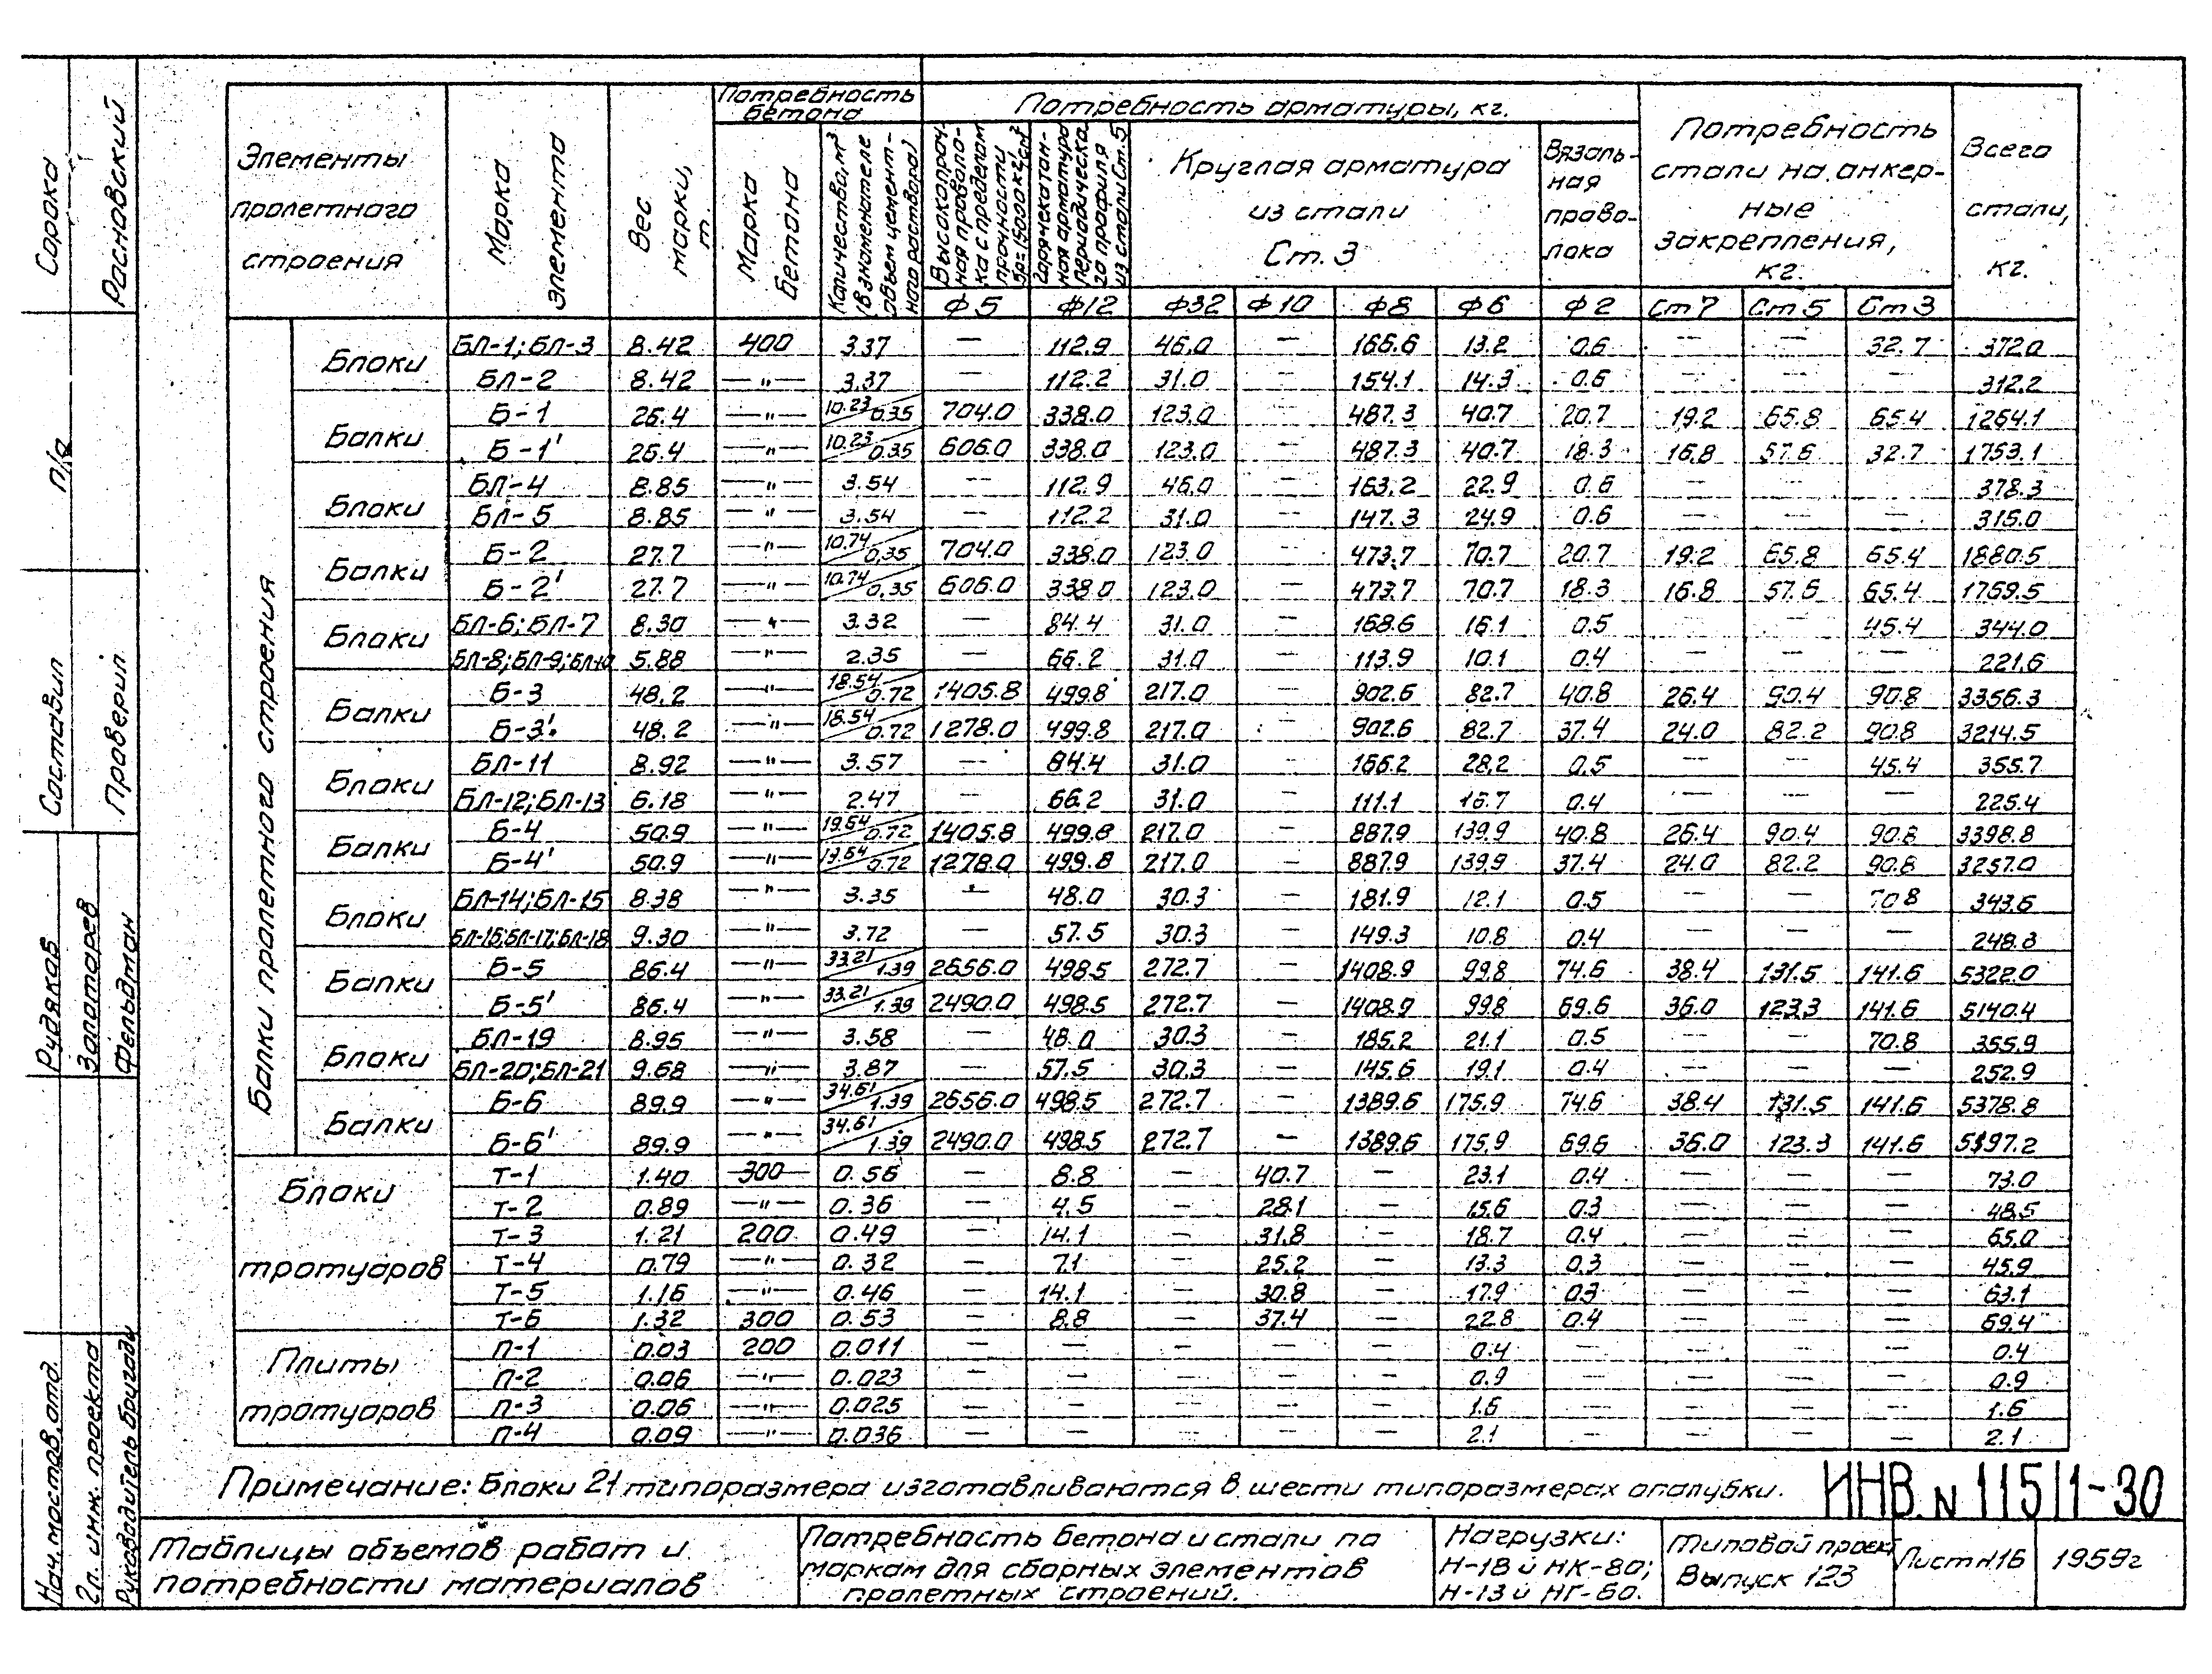 Потребность бетона
Потребность арматуры, кг.
Потребность стали на анкерные закрепления, кг.
Всего стали, кг.
Элементы пролетного строения
Марка элемента
Вес марки, т
Марка бетона
Количество, м³ (в знаменателе объем цементного раствора)
Высокопрочная проволока с пределом прочности
Горячекатанная арматура периодического профиля из стали Ст.5
Круглая арматура из стали Ст. 3
Вязальная проволока
Ф5 Ф12 Ф32 Ф10 Ф8 Ф6 Ф2 Ст 7 Ст 5 Ст 3
Балки пролетного строения
Блоки
БЛ-1; БЛ-3 8.42 400 3.37 — 112.9 46.0 — 166.6 13.2 0.6 — — 32.7 372.0
БЛ-2 8.42 —"— 3.37 — 112.2 31.0 — 154.1 14.3 0.6 — — — 312.2
Балки
Б-1 26.4 —"— 10.23/0.35 704.0 338.0 123.0 — 487.3 40.7 20.7 19.2 65.8 65.4 1264.1
Б-1' 26.4 —"— 10.23/0.35 606.0 338.0 123.0 — 487.3 40.7 18.3 16.8 57.6 32.7 1753.1
Блоки
БЛ-4 8.85 —"— 3.54 — 112.9 46.0 — 163.2 22.9 0.6 — — — 378.3
БЛ-5 8.85 —"— 3.54 — 112.2 31.0 — 147.3 24.9 0.6 — — — 315.0
Балки
Б-2 27.7 —"— 10.74/0.35 704.0 338.0 123.0 — 473.7 70.7 20.7 19.2 65.8 65.4 1880.5
Б-2' 27.7 —"— 10.74/0.35 606.0 338.0 123.0 — 473.7 70.7 18.3 16.8 57.6 65.4 1769.5
Блоки
БЛ-6; БЛ-7 8.30 —"— 3.32 — 84.4 31.0 — 168.6 16.1 0.5 — — 45.4 344.0
БЛ-8; БЛ-9; БЛ-10 5.88 —"— 2.35 — 66.2 31.0 — 113.9 10.1 0.4 — — — 221.6
Балки
Б-3 48.2 —"— 18.54/0.72 1405.8 499.8 217.0 — 902.6 82.7 40.8 26.4 90.4 90.8 3356.3
Б-3' 48.2 —"— 18.54/0.72 1278.0 499.8 217.0 — 902.6 82.7 37.4 24.0 82.2 90.8 3214.5
Блоки
БЛ-11 8.92 —"— 3.57 — 84.4 31.0 — 166.2 28.2 0.5 — — 45.4 355.7
БЛ-12; БЛ-13 6.18 —"— 2.47 — 66.2 31.0 — 111.1 16.7 0.4 — — — 225.4
Балки
Б-4 50.9 —"— 19.64/0.72 1405.8 499.8 217.0 — 887.9 139.9 40.8 26.4 90.4 90.8 3398.8
Б-4' 50.9 —"— 19.64/0.72 1278.0 499.8 217.0 — 887.9 139.9 37.4 24.0 82.2 90.8 3257.0
Блоки
БЛ-14; БЛ-15 8.38 —"— 3.35 — 48.0 30.3 — 181.9 12.1 0.5 — — 70.8 343.6
БЛ-16; БЛ-17; БЛ-18 9.30 —"— 3.72 — 57.5 30.3 — 149.3 10.8 0.4 — — — 248.3
Балки
Б-5 86.4 —"— 33.21/1.39 2656.0 498.5 272.7 — 1408.9 99.8 74.6 38.4 131.5 141.6 5322.0
Б-5' 86.4 —"— 33.21/1.39 2490.0 498.5 272.7 — 1408.9 99.8 69.6 36.0 123.3 141.6 5140.4
Блоки
БЛ-19 8.95 —"— 3.58 — 48.0 30.3 — 185.2 21.1 0.5 — — 70.8 355.9
БЛ-20; БЛ-21 9.68 —"— 3.87 — 57.5 30.3 — 145.6 19.1 0.4 — — — 252.9
Балки
Б-6 89.9 —"— 34.61/1.39 2656.0 498.5 272.7 — 1389.6 175.9 74.6 38.4 131.5 141.6 5378.8
Б-6' 89.9 —"— 34.61/1.39 2490.0 498.5 272.7 — 1389.6 175.9 69.6 36.0 123.3 141.6 5197.2
Блоки тротуаров
Т-1 1.40 300 0.56 — 8.8 — 40.7 — 23.1 0.4 — — — 73.0
Т-2 0.89 —"— 0.36 — 4.5 — 28.1 — 15.6 0.3 — — — 48.5
Т-3 1.21 200 0.49 — 14.1 — 31.8 — 18.7 0.4 — — — 65.0
Т-4 0.79 —"— 0.32 — 7.1 — 25.2 — 13.3 0.3 — — — 45.9
Т-5 1.16 —"— 0.46 — 14.1 — 30.8 — 17.9 0.3 — — — 63.1
Т-6 1.32 300 0.53 — 8.8 — 37.4 — 22.8 0.4 — — — 69.4
Плиты тротуаров
П-1 0.03 200 0.011 — — — — — 0.4 — — — — 0.4
П-2 0.06 —"— 0.023 — — — — — 0.9 — — — — 0.9
П-3 0.06 —"— 0.025 — — — — — 1.6 — — — — 1.6
П-4 0.09 —"— 0.036 — — — — — 2.1 — — — — 2.1
Примечание: Блоки 21 типоразмера изготавливаются в шести типоразмерах опалубки.
ИНВ. N 11511-30
Таблицы объемов работ и
потребности материалов
Потребность бетона и стали по
маркам для сборных элементов
пролетных строений.
Нагрузки:
Н-18 и НК-80;
Н-13 и НГ-60.
Типовой проект
Выпуск 123
Лист N 16
1959г
Сорока
Расновский
п/а
Составил
Проверил
Рудяков
Золотарев
Фельдман
Нач. мостов. отд.
Гл. инж. проекта
Руководитель бригады